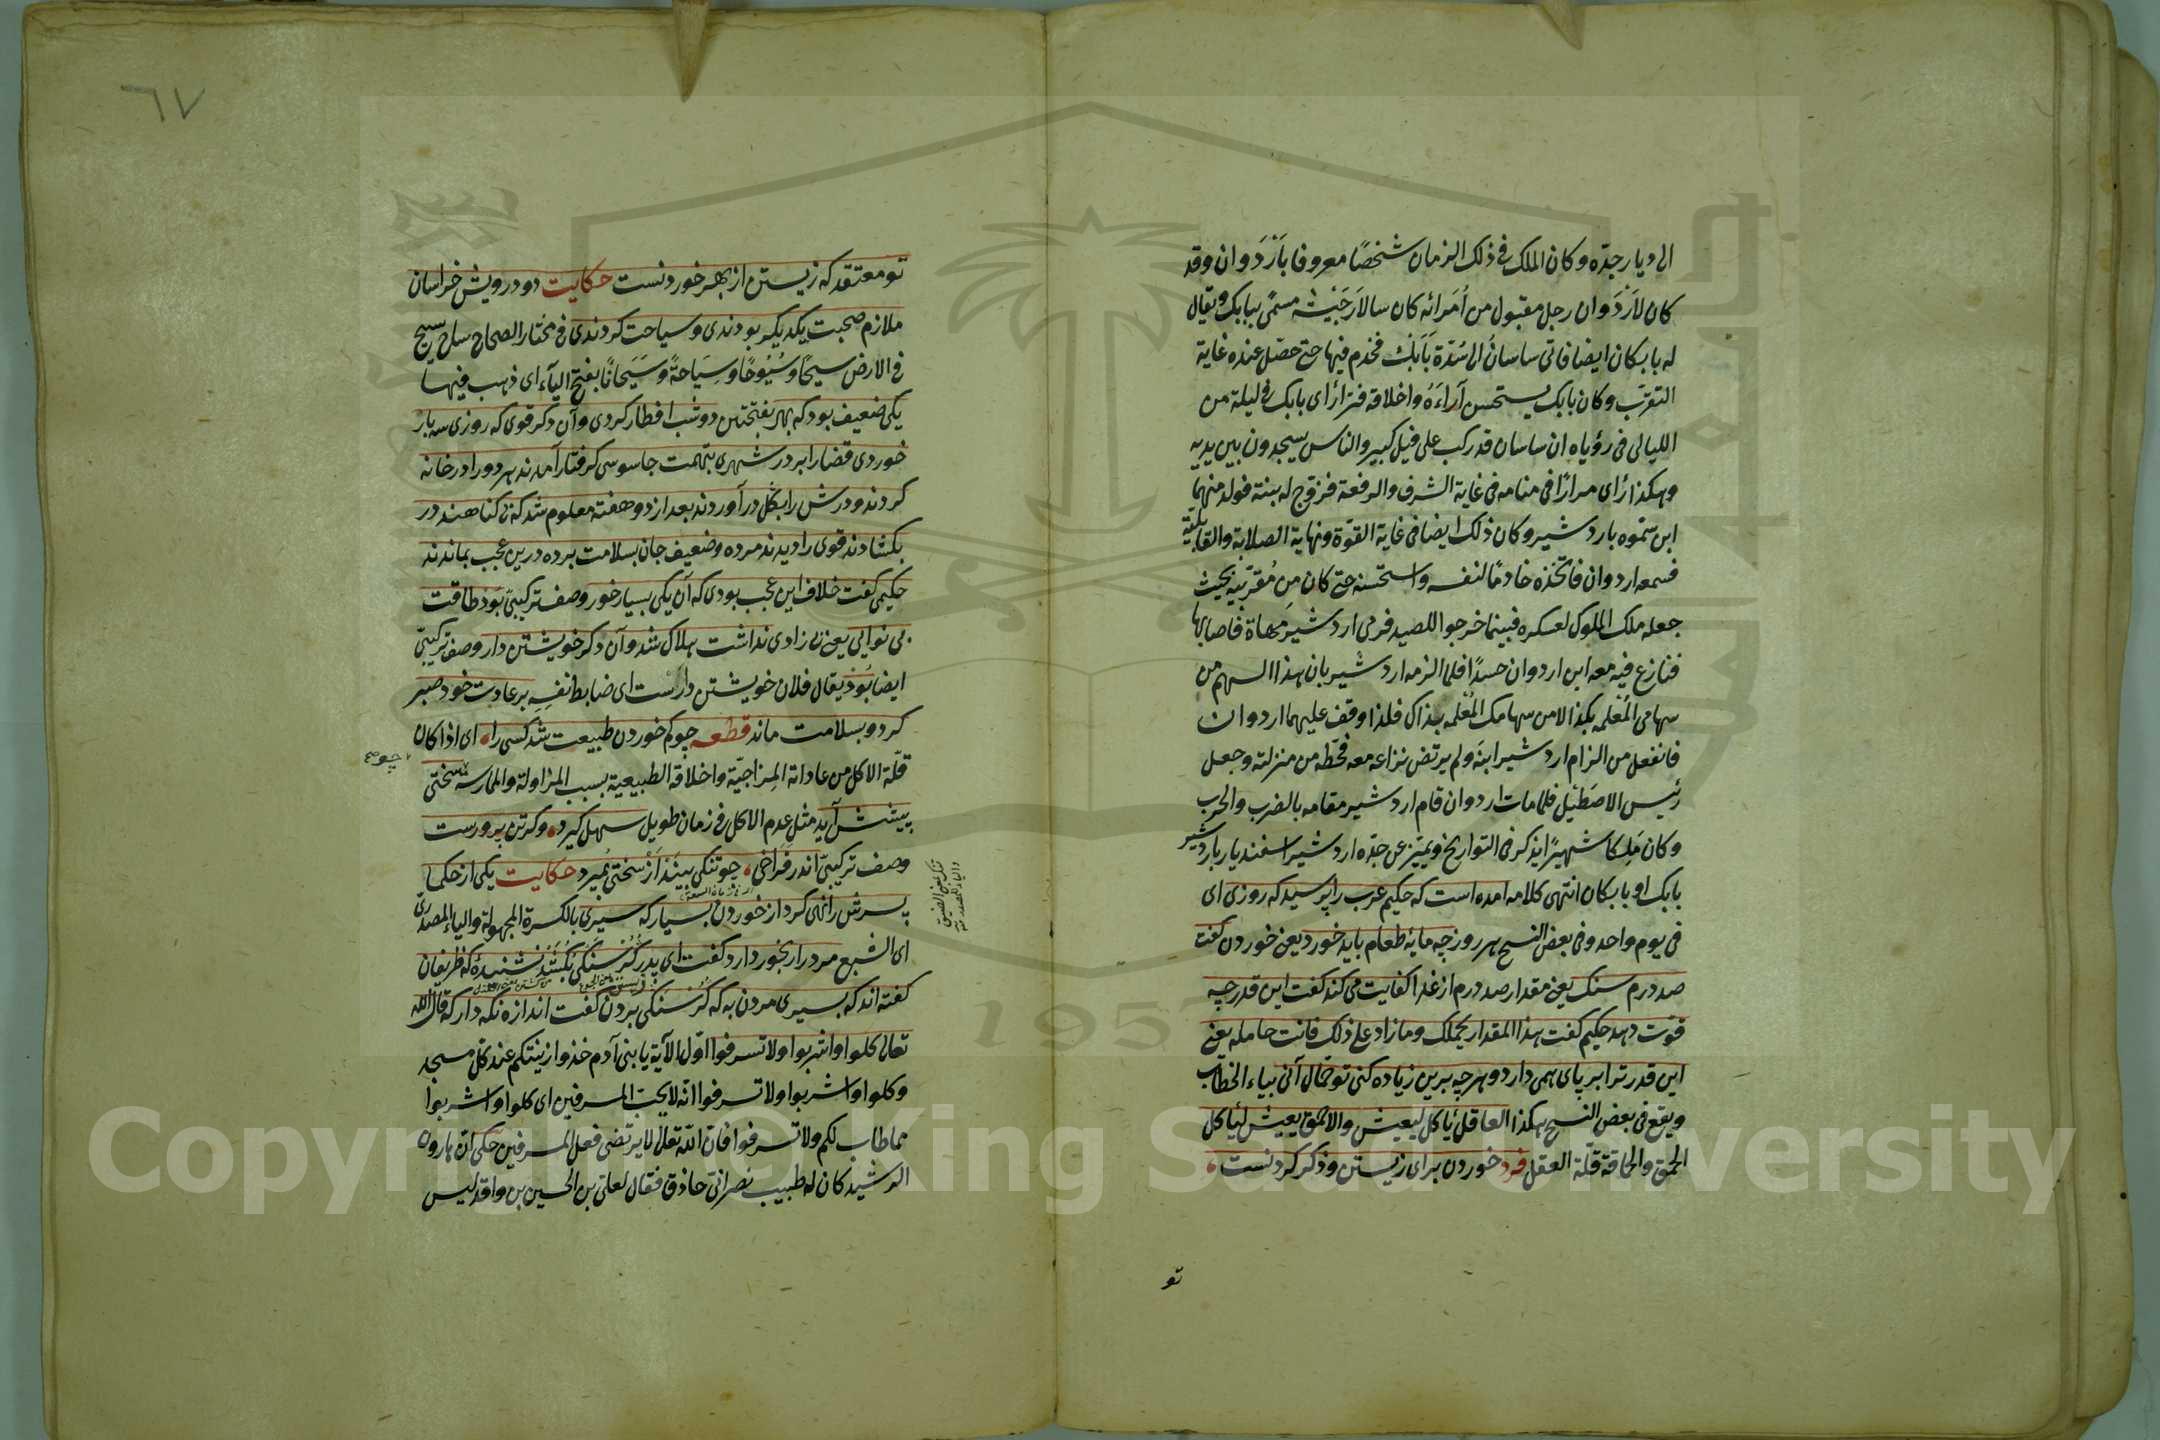 الى ديار جدّه وكان الملك فى ذلك الزمان شخصًا معروفا بأَرْدَوان وقد
كان لاَرْدَوان رجل مقبول من اُمَرائه كان سالارَ جَيْشه مسمًى ببابك ويقال
له بابكان ايضا فاتى ساسانُ الى سُدّة بَابَك فخدم فيها حتى حصّل عنده غاية
التقرّب وكان بابك يستحسن آراءَهُ واخلاقه فترا راى بابك فى ليلة من
الليالى فى رؤياه ان ساسان قد ركب على فيل كبير والناس يسجدون بين يديه
وهكذا رأى مرارًا فى منامه فى غاية الشرف والرفعة فزوّج له بنته فولد منهما
ابن سمّوه باردشير وكان ذلك ايضا فى غاية القوّة ونهاية الصلابة والقابليّة
فسمعه اردوان فاتّخذه خادمًا لنفسه واستحسنه حتى كان مِن مُقرّبيه بحيث
جعله ملك الملوك لعسكره فبينما خرجوا للصيد فرمى اردشير مَهاة فاصابها
فنازع فيه معه ابن اردوان حسدًا فلما الزمه اردشير بان هذا السهم من
سهامى المُعْلمه بكذا لا من سهامك المُعْلمه بذاك فلذا وقف عليهما اردوان
فانفعل من الزام اردشير ابنَه ولم يرتض نزاعه معه فحَطّه من منزلته وجعل
رئيس الاصَطبْل فلما مات اردوان قام اردشير مقامه بالضرب والحرب
وكان مَلِكا شهيرًا يذكر فى التواريخ ويميّز عن جدّه اردشير اسفنديار باردشير
بابك او بابكان انتهى كلامه امده است كه حكيم عرب را پرسيد كه روزى اى
فى يوم واحد وفى بعض النسخ هر روز چه مايه طعام بايد خورد يعنى خوردن كفت
صد درم سنك يعنى مقدار صد درم از غدا كفايت مى كند كفت اين قدر چه
قوّت دهد حكيم كفت هذا المقدار يحملك وما زاد على ذلك فانت حامله يعنى
اين قدر ترا بر پاى همى دارد وهرچه برين زياده كنى تو حمّال آنى بياء الخطاب
ويقع فى بعض النسخ هكذا العاقل يأكل ليعيش والاحمق يعيش ليأكل
الحمق والحماقة قلّة العقل فرد خوردن براى زيستن وذكر كردنست
تو
٦٧
تو معتقد كه زيستن از بهر خوردنست حكايت دو درويش خراسان
ملازم صحبت يكديكر بودندى وسياحت كردندى فى مختار الصحاح ساح يسيح
فى الارض سيحًا وسُيُوحًا وسِيَاحةً وسَيَحانًا بفتح الياء اى ذهب فيها
يكى ضعيف بود كه بهر بفتحتين دوشب افطار كردى وآن دكر قوى كه روزى سه بار
خوردى قضارا بر در شهرى بتهمت جاسوسى كرفتار آمدند هر دو را در خانه
كردند ودرش را بكل در آوردند بعد از دو هفته معلوم شد كه بى كناهند در
بكشادند قوى را ديدند مرده وضعيف جان بسلامت برده درين عجب بماندند
حكيمى كفت خلاف اين عجب بودى كه آن يكى بسيار خور وصف تركيبىّ بود طاقت
بى نوايى يعنى بى زادى نداشت هلاك شد وآن دكر خويشتن دار وصف تركيبىّ
ايضا بُود يقال فلان خويشتن دارست اى ضابط نفسِهِ بر عادت خود صبر
كرد وبسلامت ماند قطعه چو كم خوردن طبيعت شد كسى را اى اذا كان
چو
قلّة الاكل من عاداته المِزاجيّة واخلاقه الطبيعية بسبب المزاولة والممارسة سختى
پيشش آيد مثل عدم الاكل فى زمان طويل سهل كيرد وكر تن پرورست
وصف تركيبىّ اندر فَراخى چو تنكى بينَد اَزْ سختى بُميرد حكايت يكى از حكما
پسرش را نهى كرد از خوردن بسيار كه سيرى بالكسرة المجهولة والياء المصدرى
اى الشبع مردرا رنجور دارد كفت اى پدر كُرُسنكى بُكُشَد نشنيدۀ كه ظريفان
كفته اند كه بسيرى مردن به كه كُرُسنكى بردن كفت اندازه نكه دار كه قال الله
تعالى كلوا واشربوا ولا تسرفوا اوّل الآية يا بنى آدم خذوا زينتكم عند كل مسجد
وكلوا واشربوا ولا تسرفوا انّه لا يحبّ المسرفين اى كلوا واشربوا
مما طاب لكم ولا تسرفوا فان الله تعالى لا يرتضى فعل المسرفين حكى ان هارون
الرشيد كان له طبيب نصرانىّ حاذق فقال لعلىّ بن الحسين بن واقد ليس
Copyright © King Saud University
1957